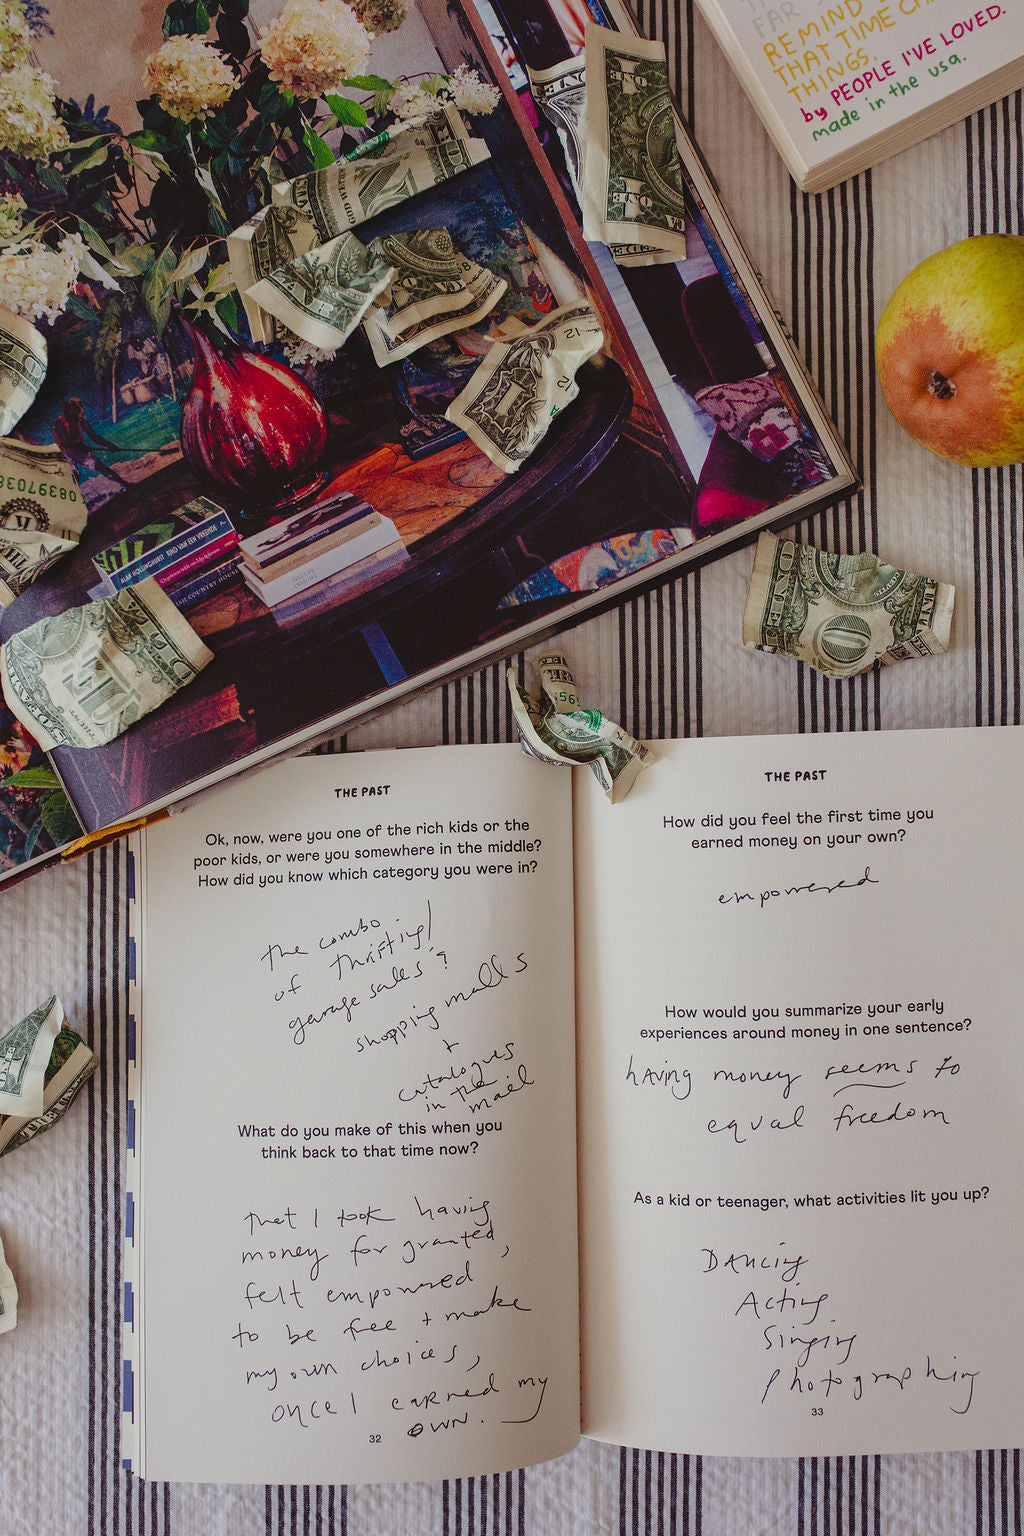 FAR
REMIND
THAT TIME
THINGS.
by PEOPLE I'VE LOVED.
made in the usa.
ONE
ALAN HOLLINGHURST KIND VAN EEN VREEMDE
COUNTRY HOUSE
08397038
THE PAST
Ok, now, were you one of the rich kids or the
poor kids, or were you somewhere in the middle?
How did you know which category you were in?
the combo
of thrifting/
garage sales?
shopping malls
+
catalogues
in the
mail
What do you make of this when you
think back to that time now?
that I took having
money for granted,
felt empowered
to be free + make
my own choices,
once I earned my
own.
32
THE PAST
How did you feel the first time you
earned money on your own?
empowered
How would you summarize your early
experiences around money in one sentence?
having money seems to
equal freedom
As a kid or teenager, what activities lit you up?
DANCing
Acting
Singing
photographing
33